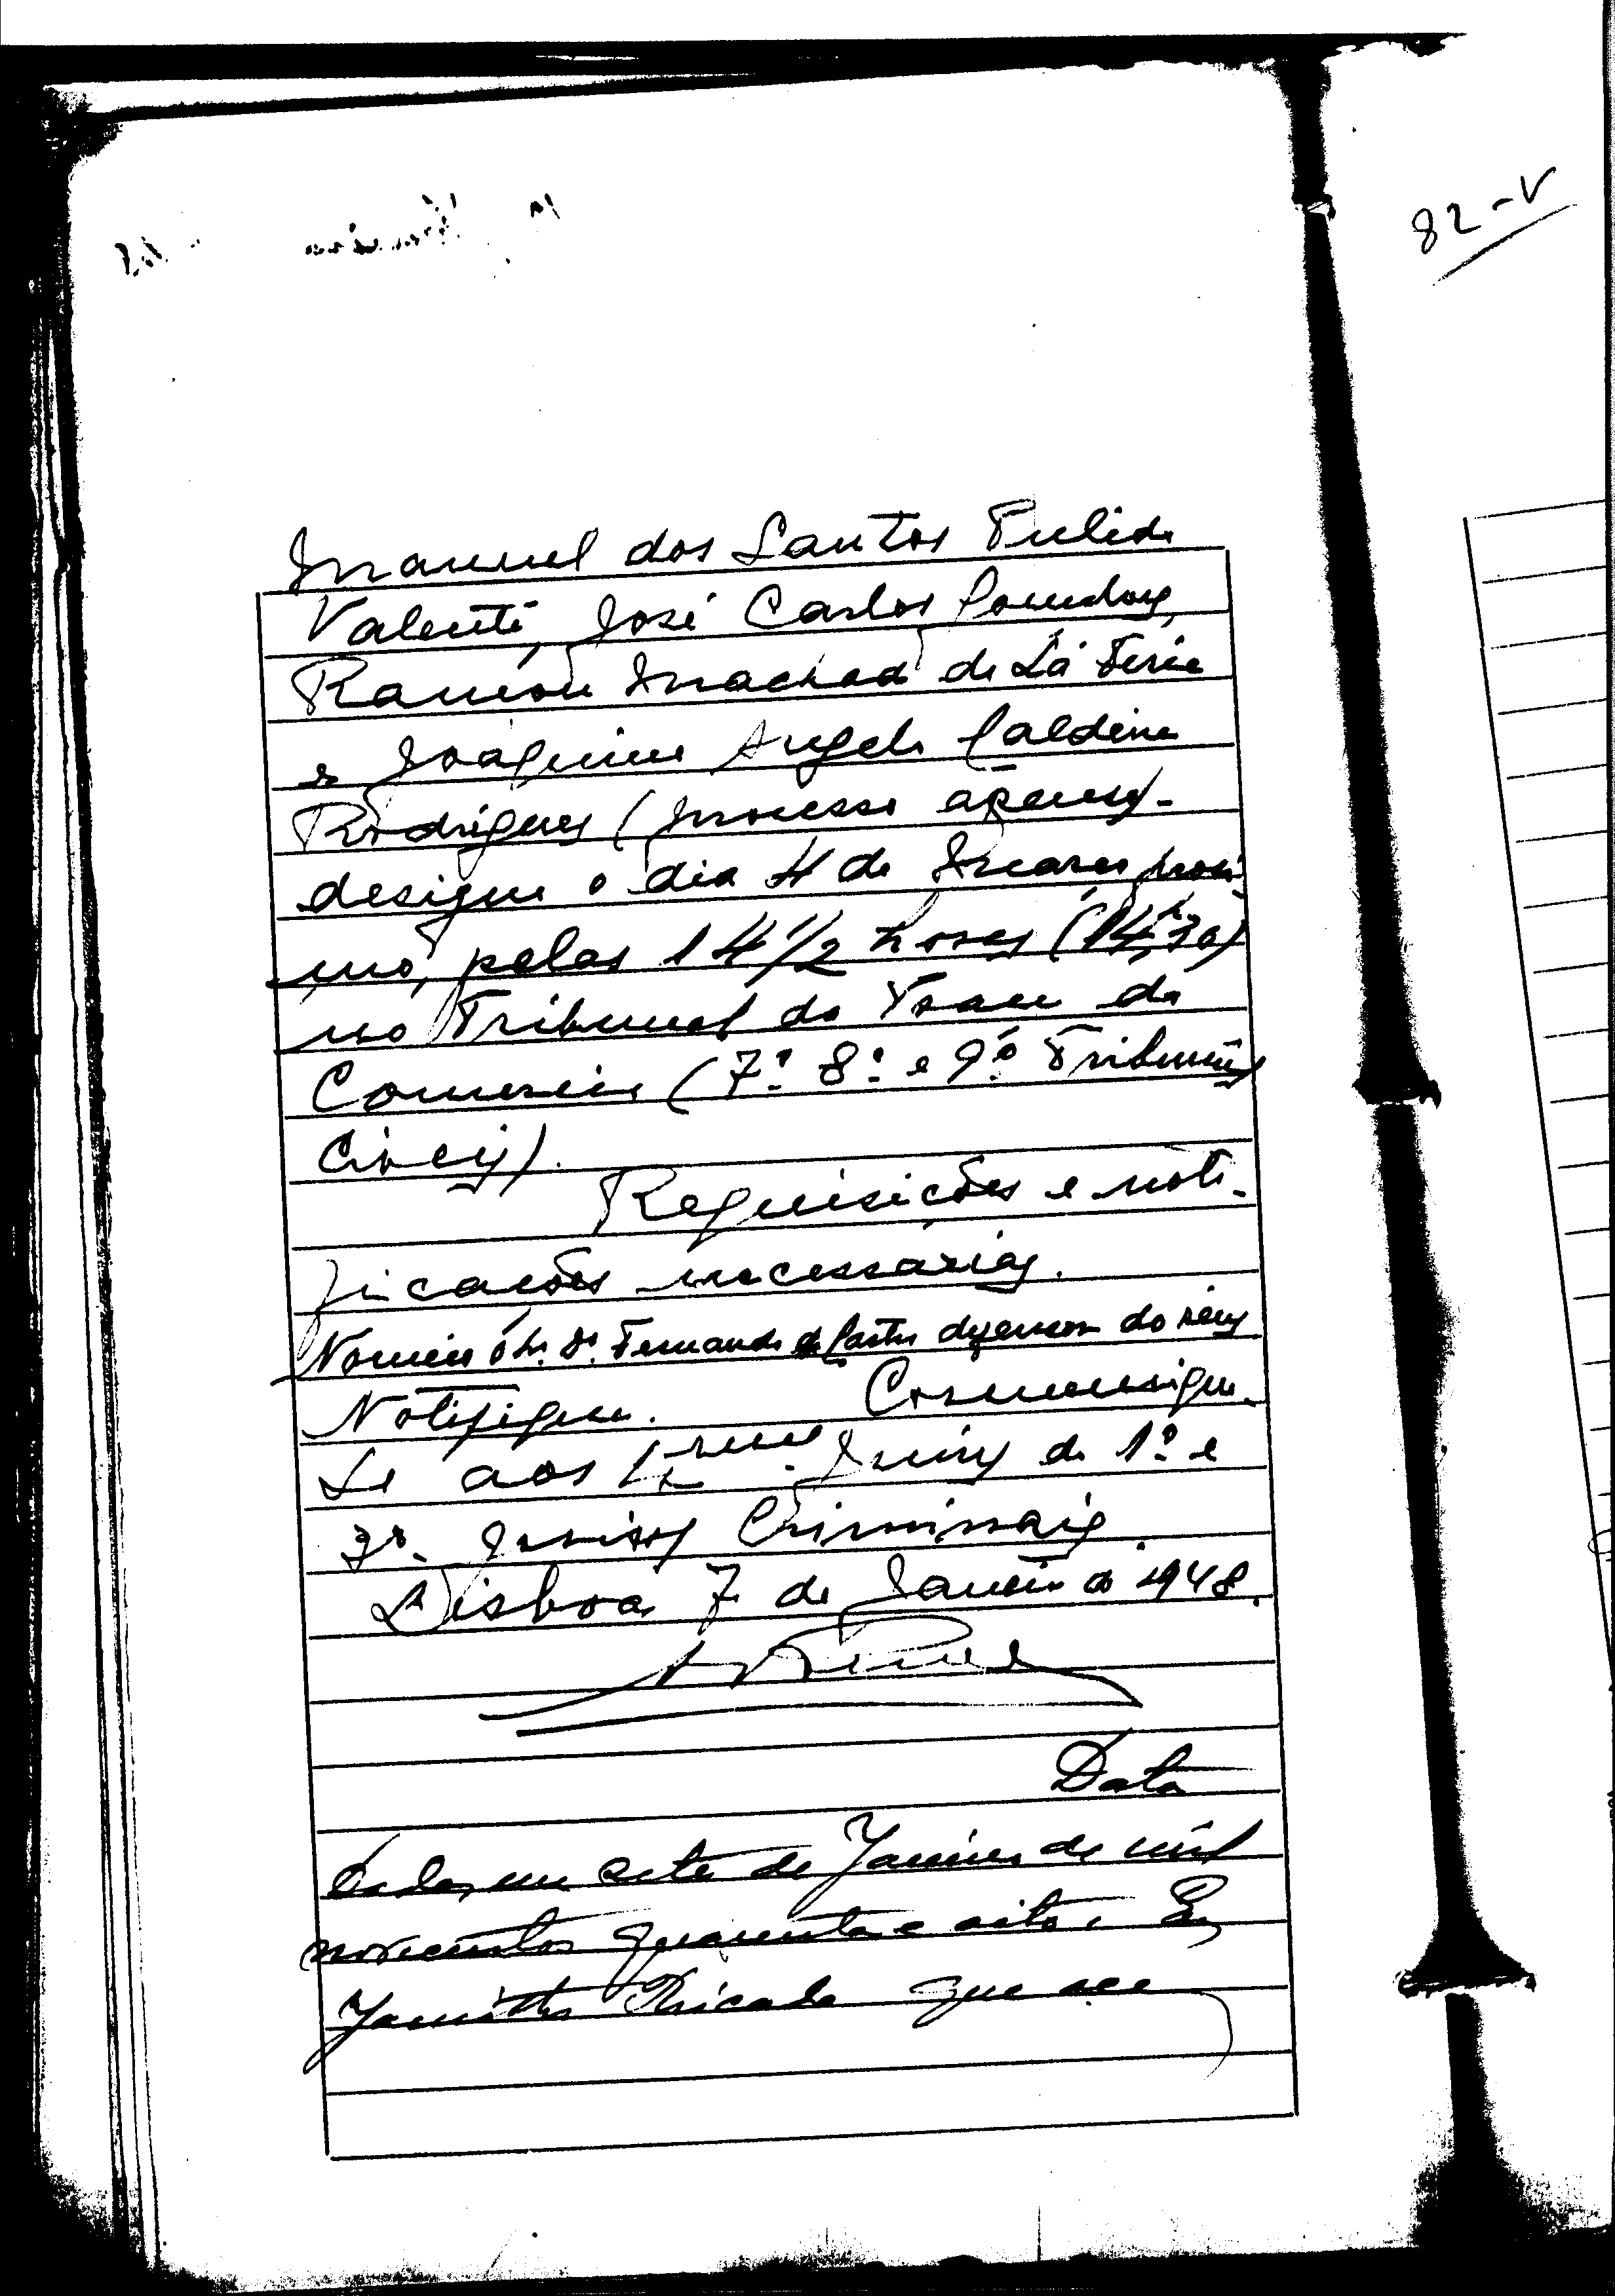 82-V
Manuel dos Santos Pulido
Valente, José Carlos
Ramon Machado de La Feria
e Joaquim Angelo Caldeira
Rodrigues (processo apenso)
designo o dia 4 de Março proxi-
mo, pelas 14 1/2 horas (14,30)
no Tribunal da Vara do
Comercio (7º. 8º. e 9º. Tribunais
Civeis).
Requisições e noti-
ficações necessarias.
Nomeio o Sr. Dr. Fernando de Castro defensor do reus
Notifique. Comunique-
se aos Juizes do 1º. e
3º. Juizos Criminais.
Lisboa, 7 de Janeiro de 1948.
Data
em sete de Janeiro de mil
novecentos quarenta e oito. Eu
que